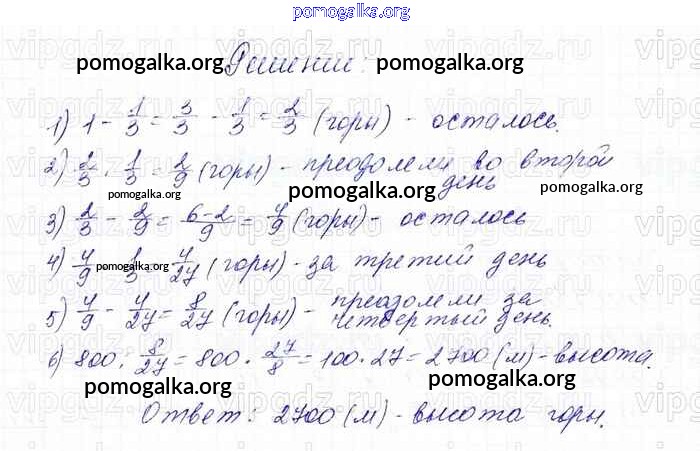 pomogalka.org
Решение:
pomogalka.org pomogalka.org
1) 1 - 1/3 = 3/3 - 1/3 = 2/3 (горы) - осталось.
2) 2/3 · 1/3 = 2/9 (горы) - преодолели во второй
день
pomogalka.org pomogalka.org
3) 2/3 - 2/9 = 6-2/9 = 4/9 (горы) - осталось
4) 4/9 · 1/3 = 4/27 (горы) - за третий день
pomogalka.org pomogalka.org
5) 4/9 - 4/27 = 8/27 (горы) - преодолели за
четвертый день.
6) 800 : 8/27 = 800 · 27/8 = 100 · 27 = 2700 (м) - высота.
pomogalka.org pomogalka.org
Ответ: 2700 (м) - высота горы.